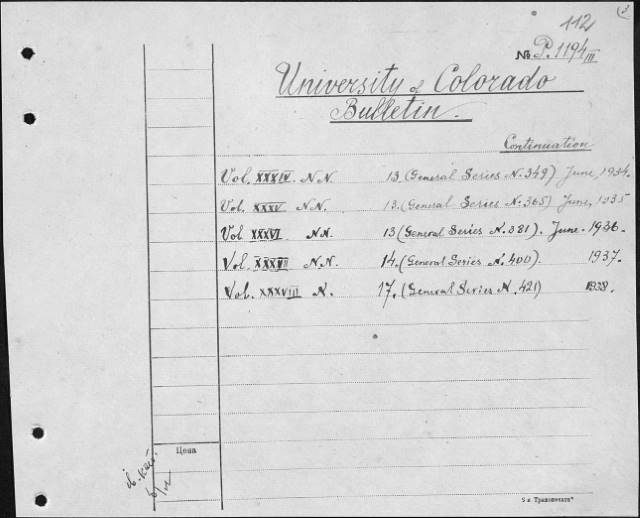 3
112
№ P. 1194 III
University of Colorado
Bulletin.
Continuation
Vol. XXXIV. N.N. 13. (General Series N. 349) June, 1934.
Vol. XXXV N.N. 13. (General Series N. 365) June, 1935
Vol XXXVI N.N. 13 (General Series N. 381). June. 1936.
Vol. XXXVII N.N. 14. (General Series N. 400). 1937.
Vol. XXXVIII N. 17. (General Series N. 421) 1938.
Цена